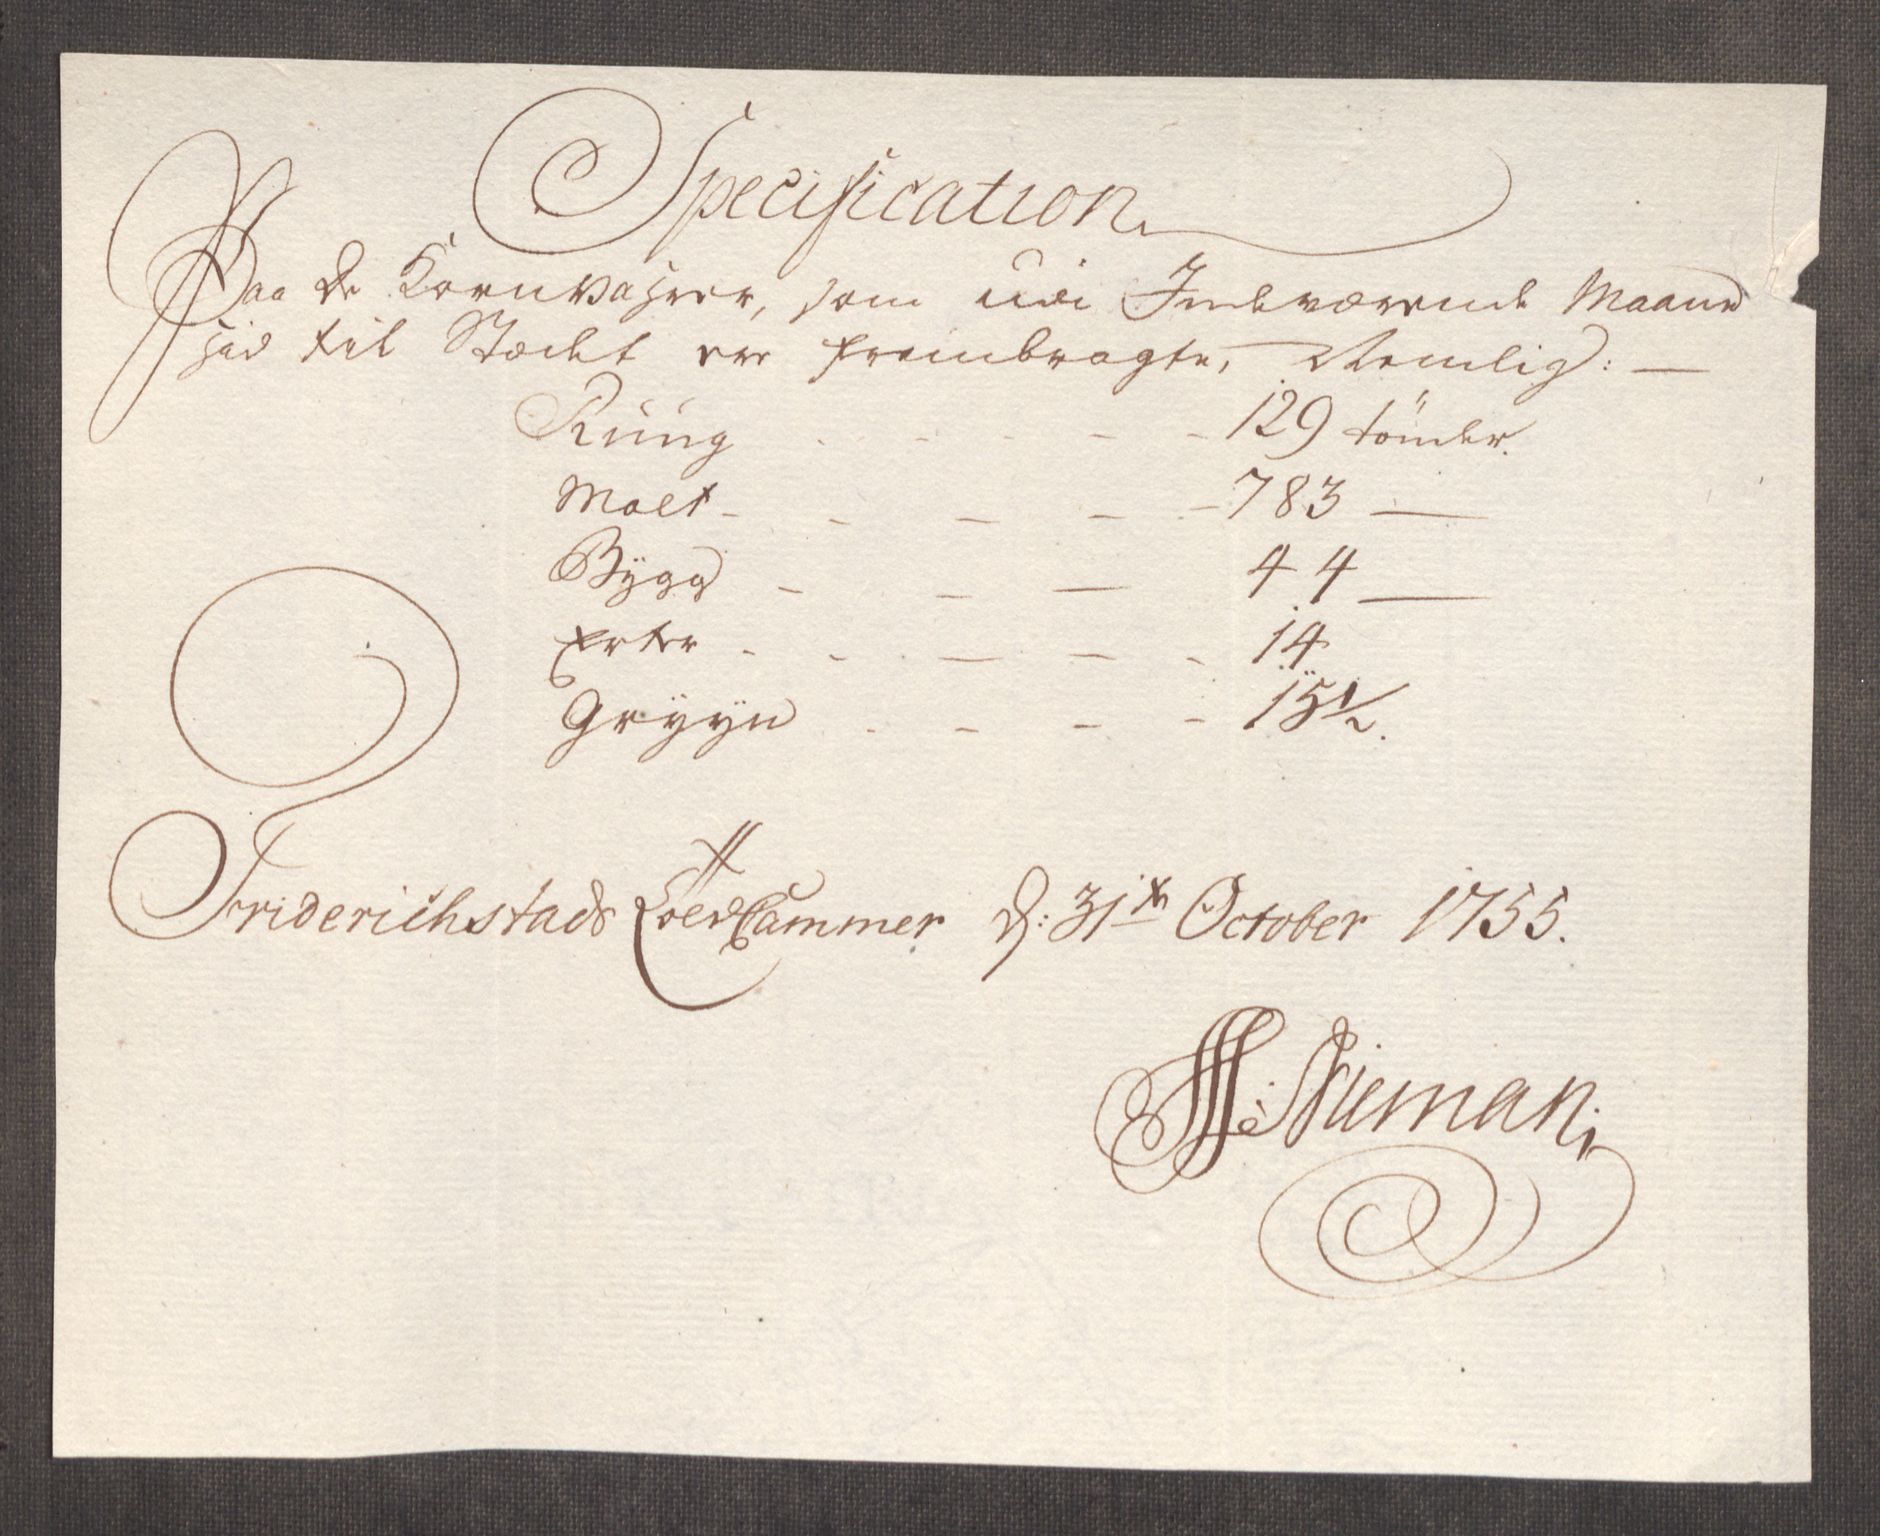 Specification
Paa de Kornvahrer, som udi Indeværende Maaned
hid til Stædet ere frembragte, Nemlig: —
Rüüg . . . - - - 129 tönder.
Malt - - - - - 783 —
Bÿgg - - — 44 —
Erter - - — - - 14
Grÿyn . - - - 15 1/2.
Friderichstads Toldkammer d: 31te October 1755.
Nieman